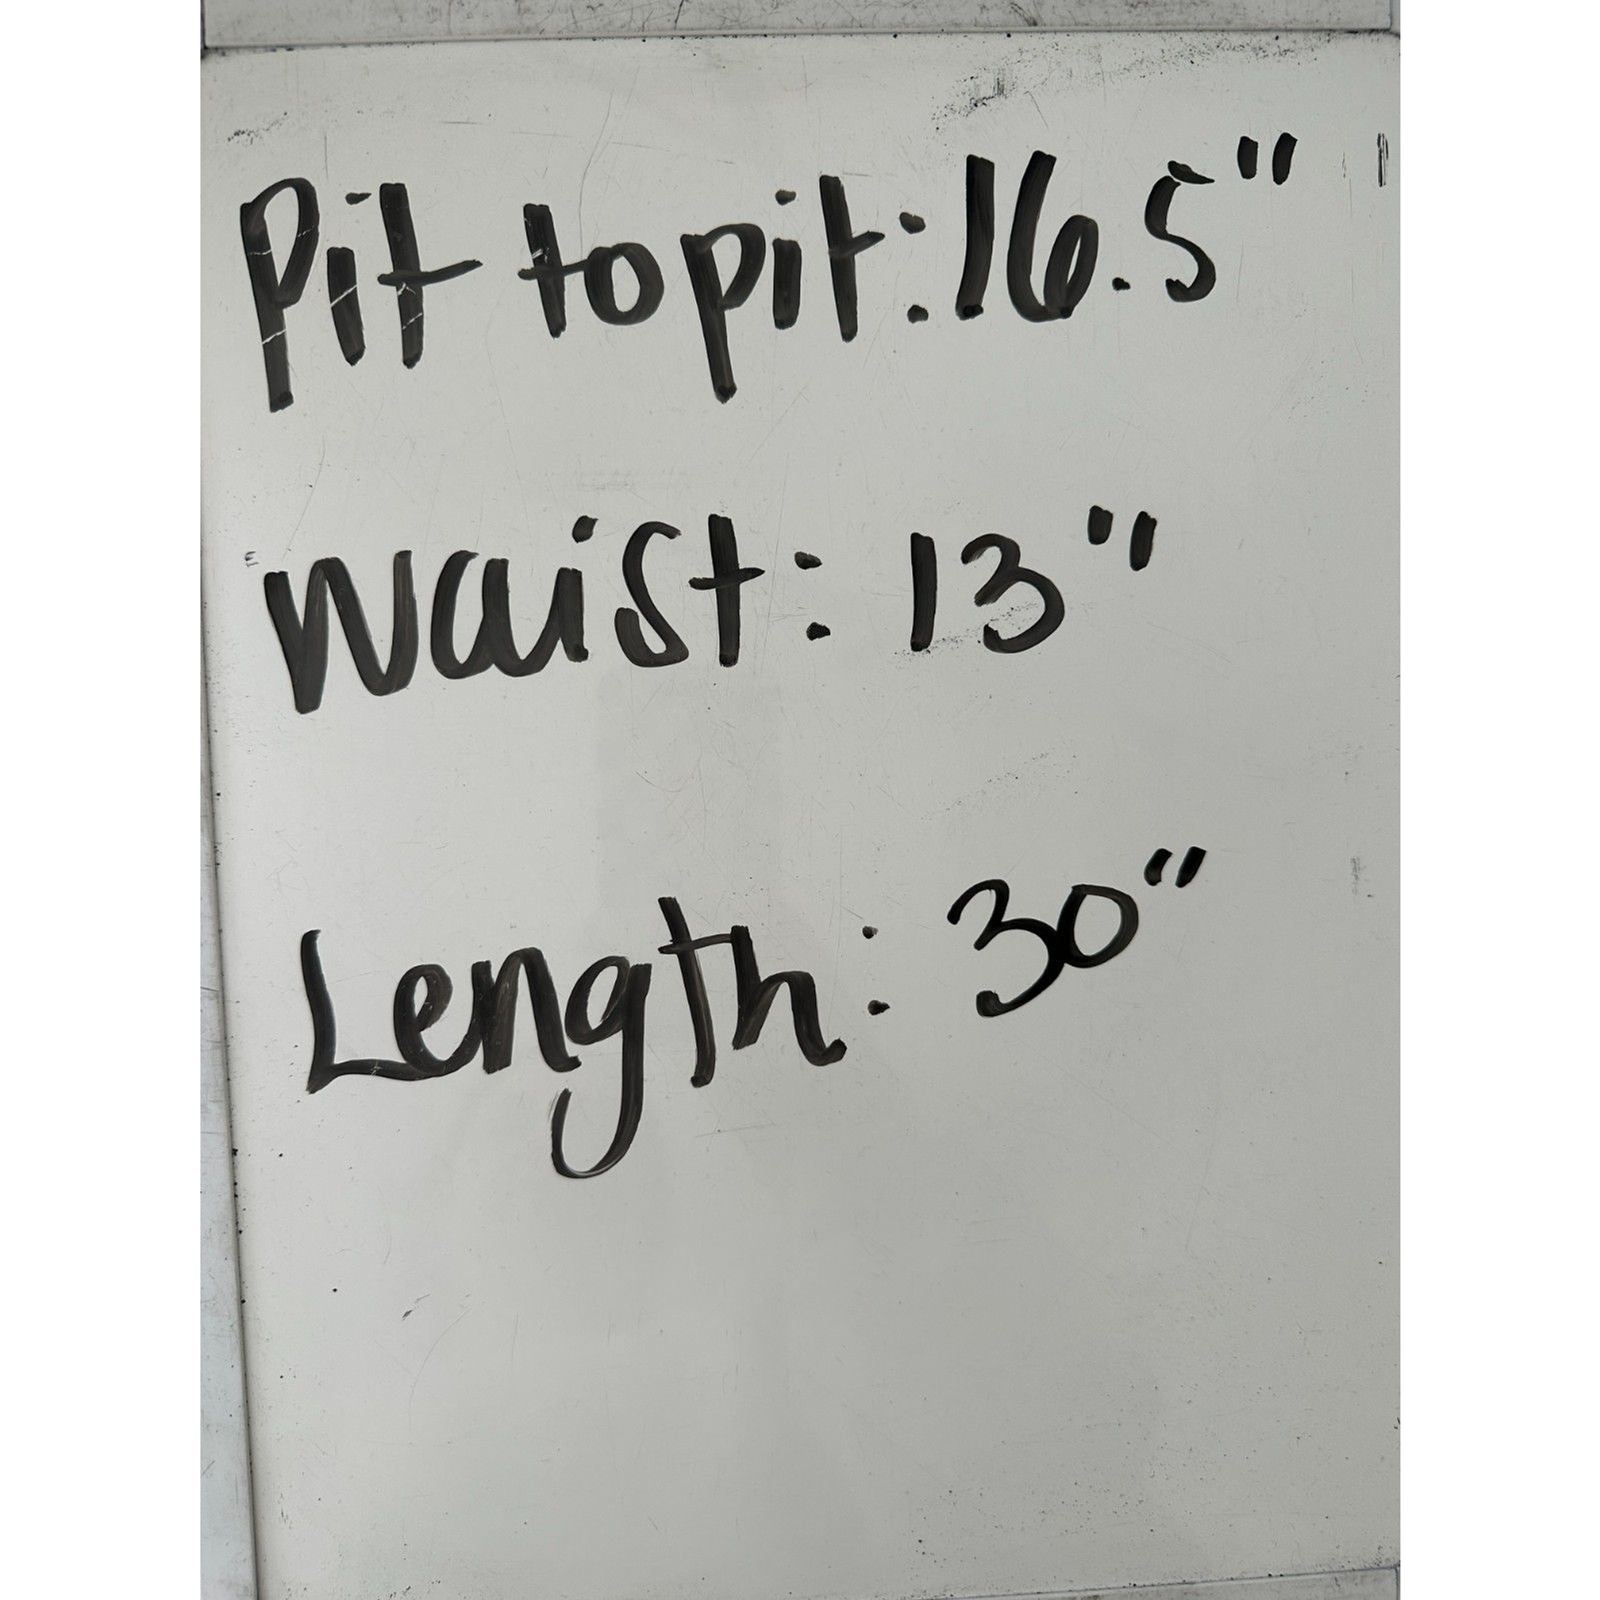 Pit to pit: 16.5"
Waist: 13"
Length: 30"